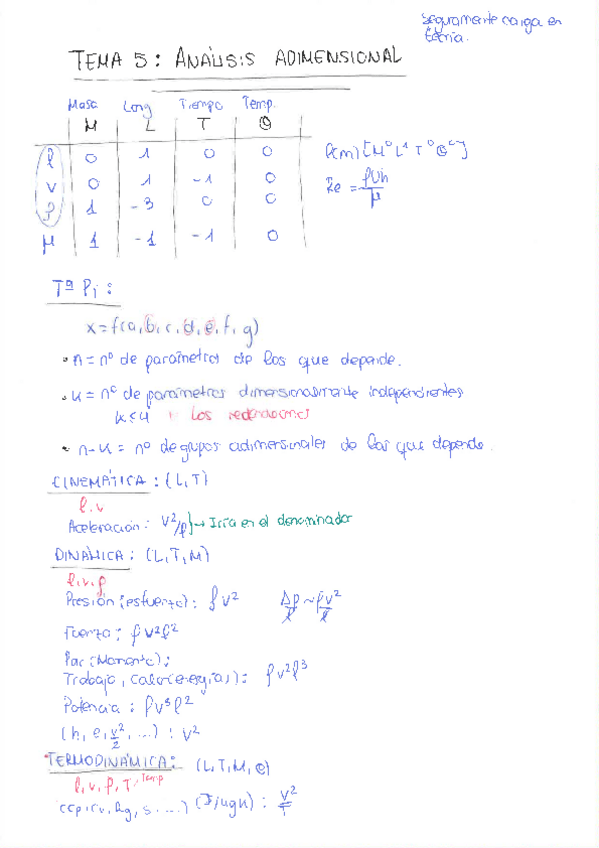 Seguramente caiga en
teoría.
TEMA 5: ANÁLISIS ADIMENSIONAL
Masa Long Tiempo Temp.
M L T Θ
l 0 1 0 0 l(m) [M⁰ L¹ T⁰ Θ⁰]
v 0 1 -1 0 Re = ρvh/μ
ρ 1 -3 0 0
μ 1 -1 -1 0
Tª Pi:
x = f(a, b, c, d, e, f, g)
• n = nº de parámetros de los que depende.
• k = nº de parámetros dimensionalmente independientes
k ≤ 4 los redondeamos
• n-k = nº de grupos adimensionales de los que depende.
CINEMÁTICA: (L, T)
l, v
Aceleración: v²/l }→ Iría en el denominador
DINÁMICA: (L, T, M)
l, v, ρ
Presión (esfuerzo): ρv² Δp/l ~ ρv²/l
Fuerza: ρv²l²
Par (Momento):
Trabajo, calor(energías): ρv²l³
Potencia: ρv³l²
(h, e, v²/2, ...): v²
TERMODINÁMICA: (L, T, M, Θ)
l, v, ρ, T → Temp
(cp, cv, Rg, s ...) (J/kgK): v²/T